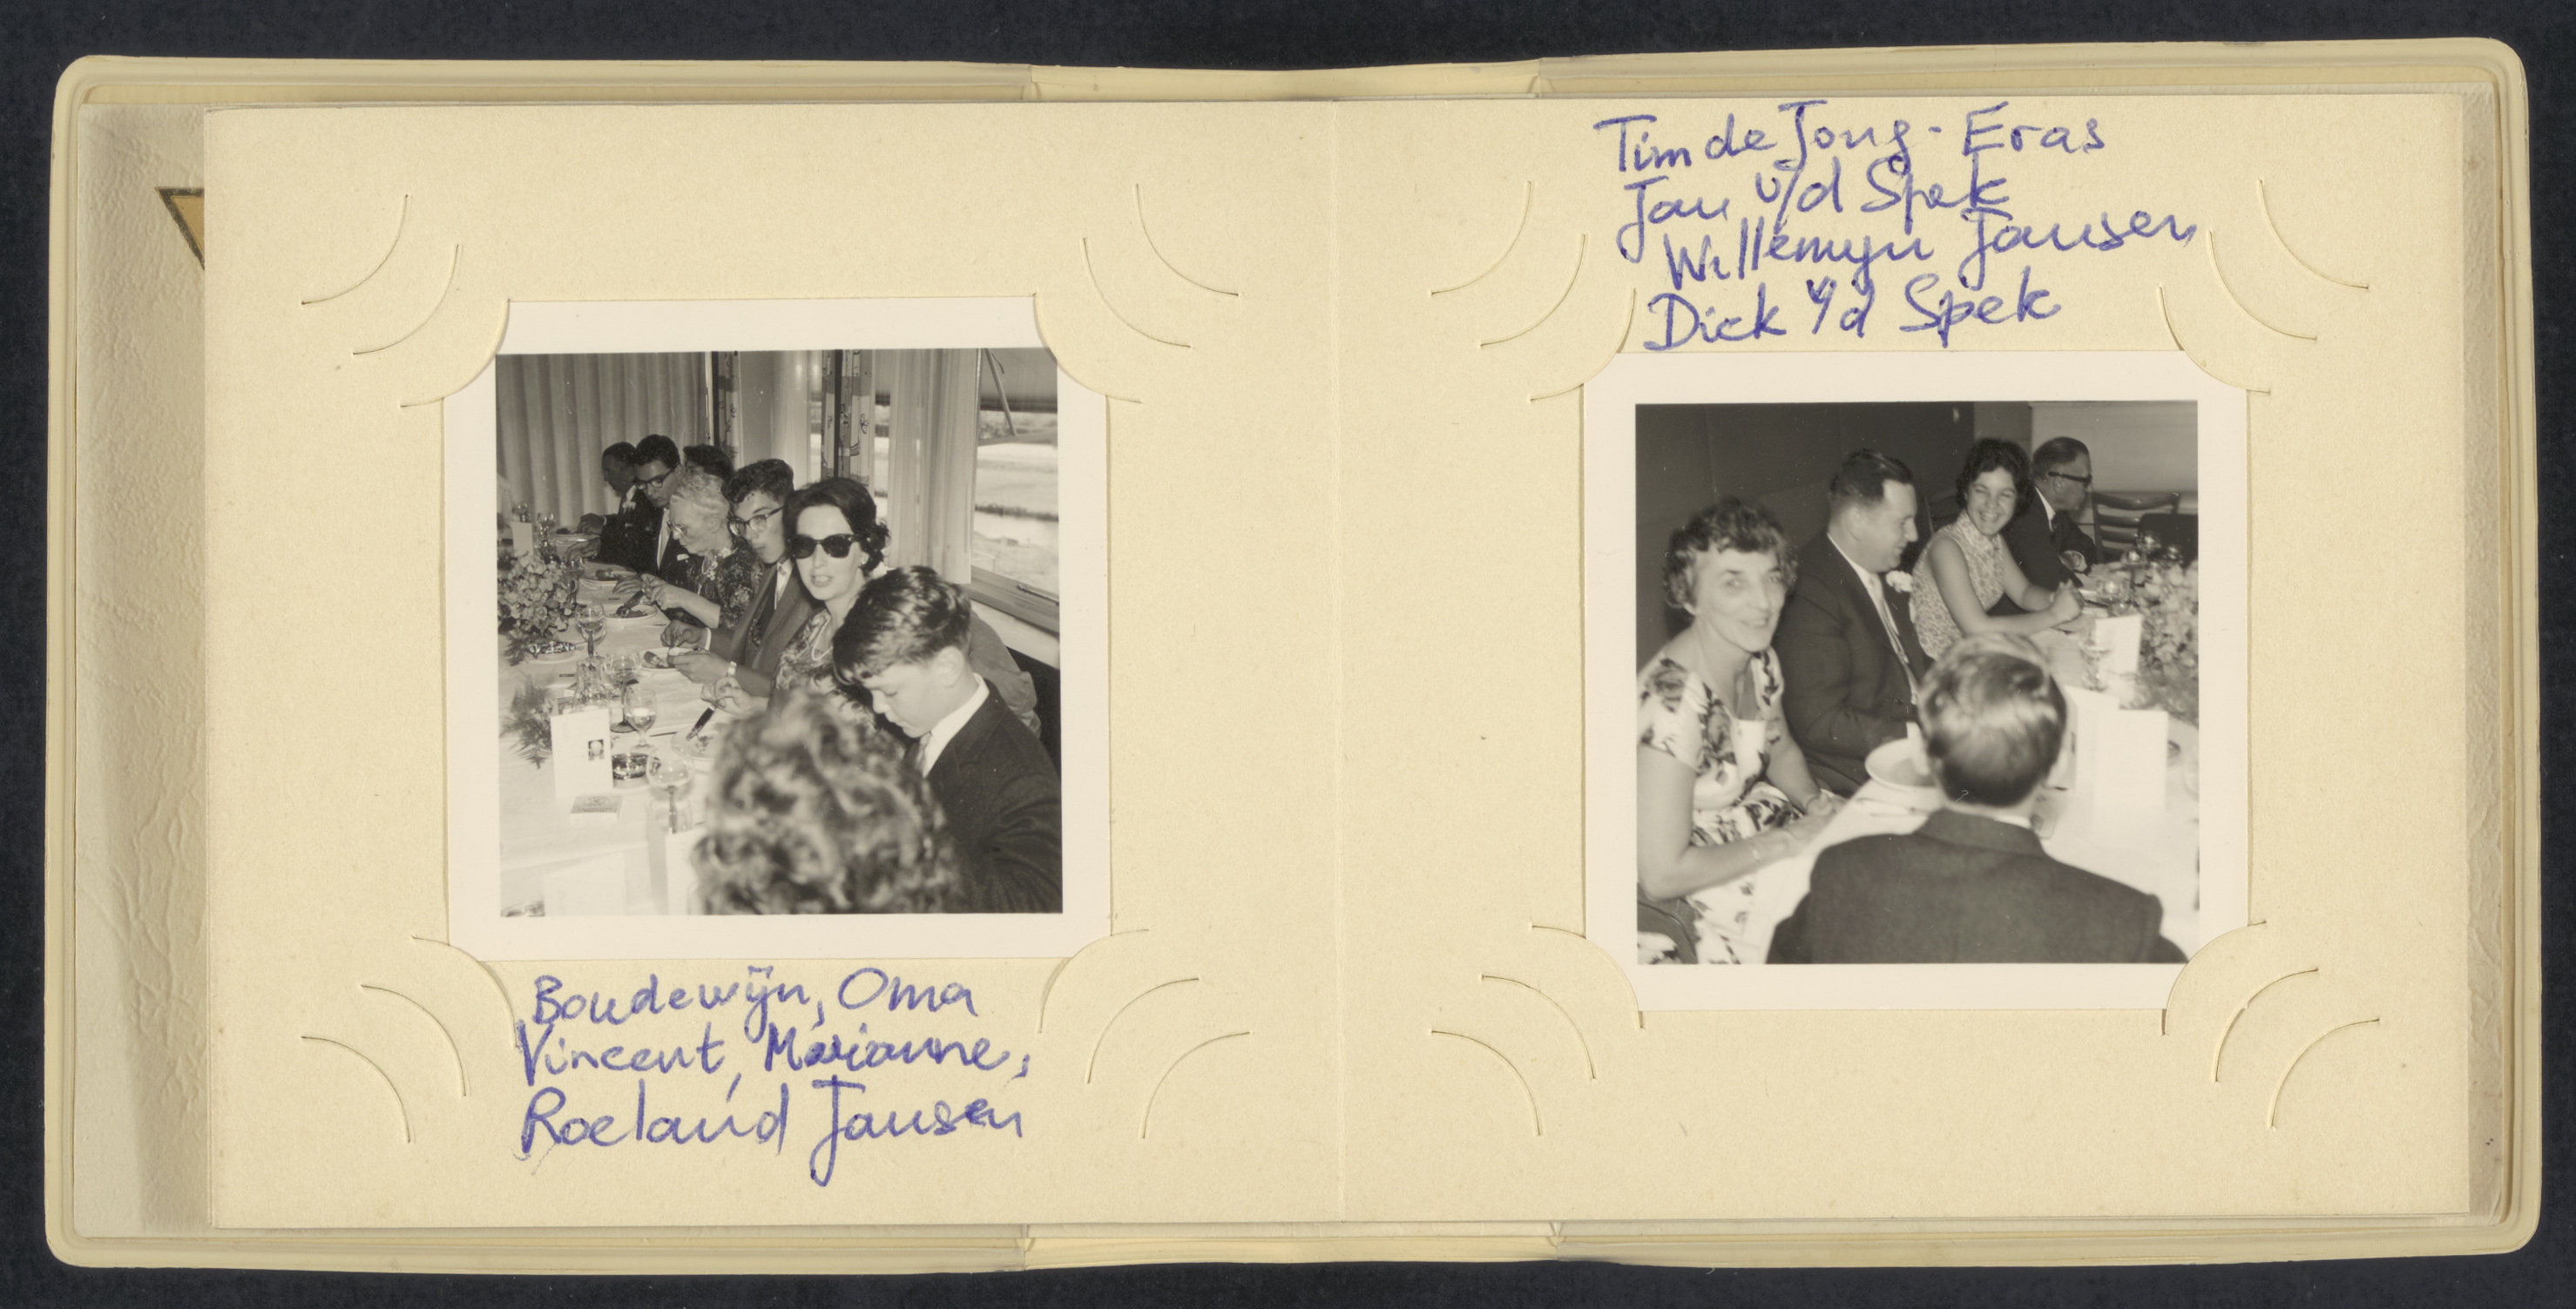 Boudewijn, Oma
Vincent, Marianne,
Roeland Jansen
Tim de Jong - Eras
Jan v/d Spek
Willemijn Jansen
Dick v/d Spek